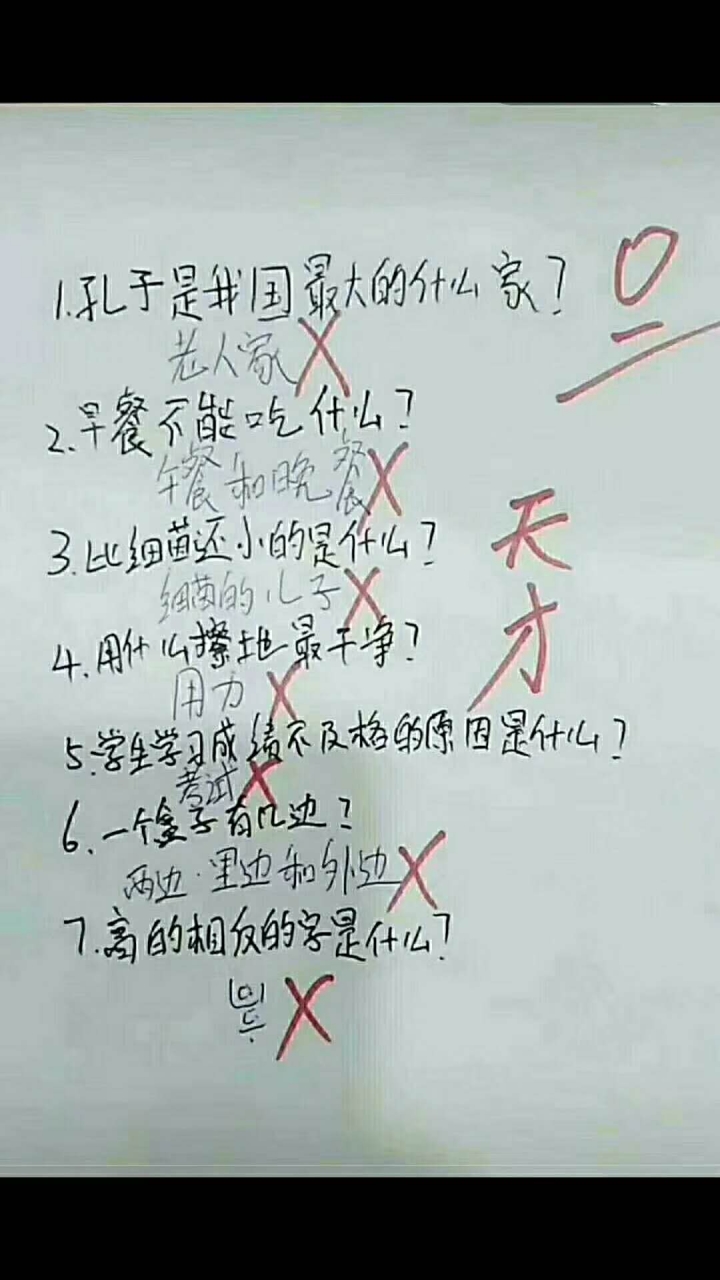 1.孔子是我国最大的什么家?
老人家
0
2.早餐不能吃什么?
午餐和晚餐
3.比细菌还小的是什么?
细菌的儿子
天才
4.用什么擦地最干净?
用力
5.学生学习成绩不及格的原因是什么?
考试
6.一个盒子有几边?
两边·里边和外边
7.高的相反的字是什么?